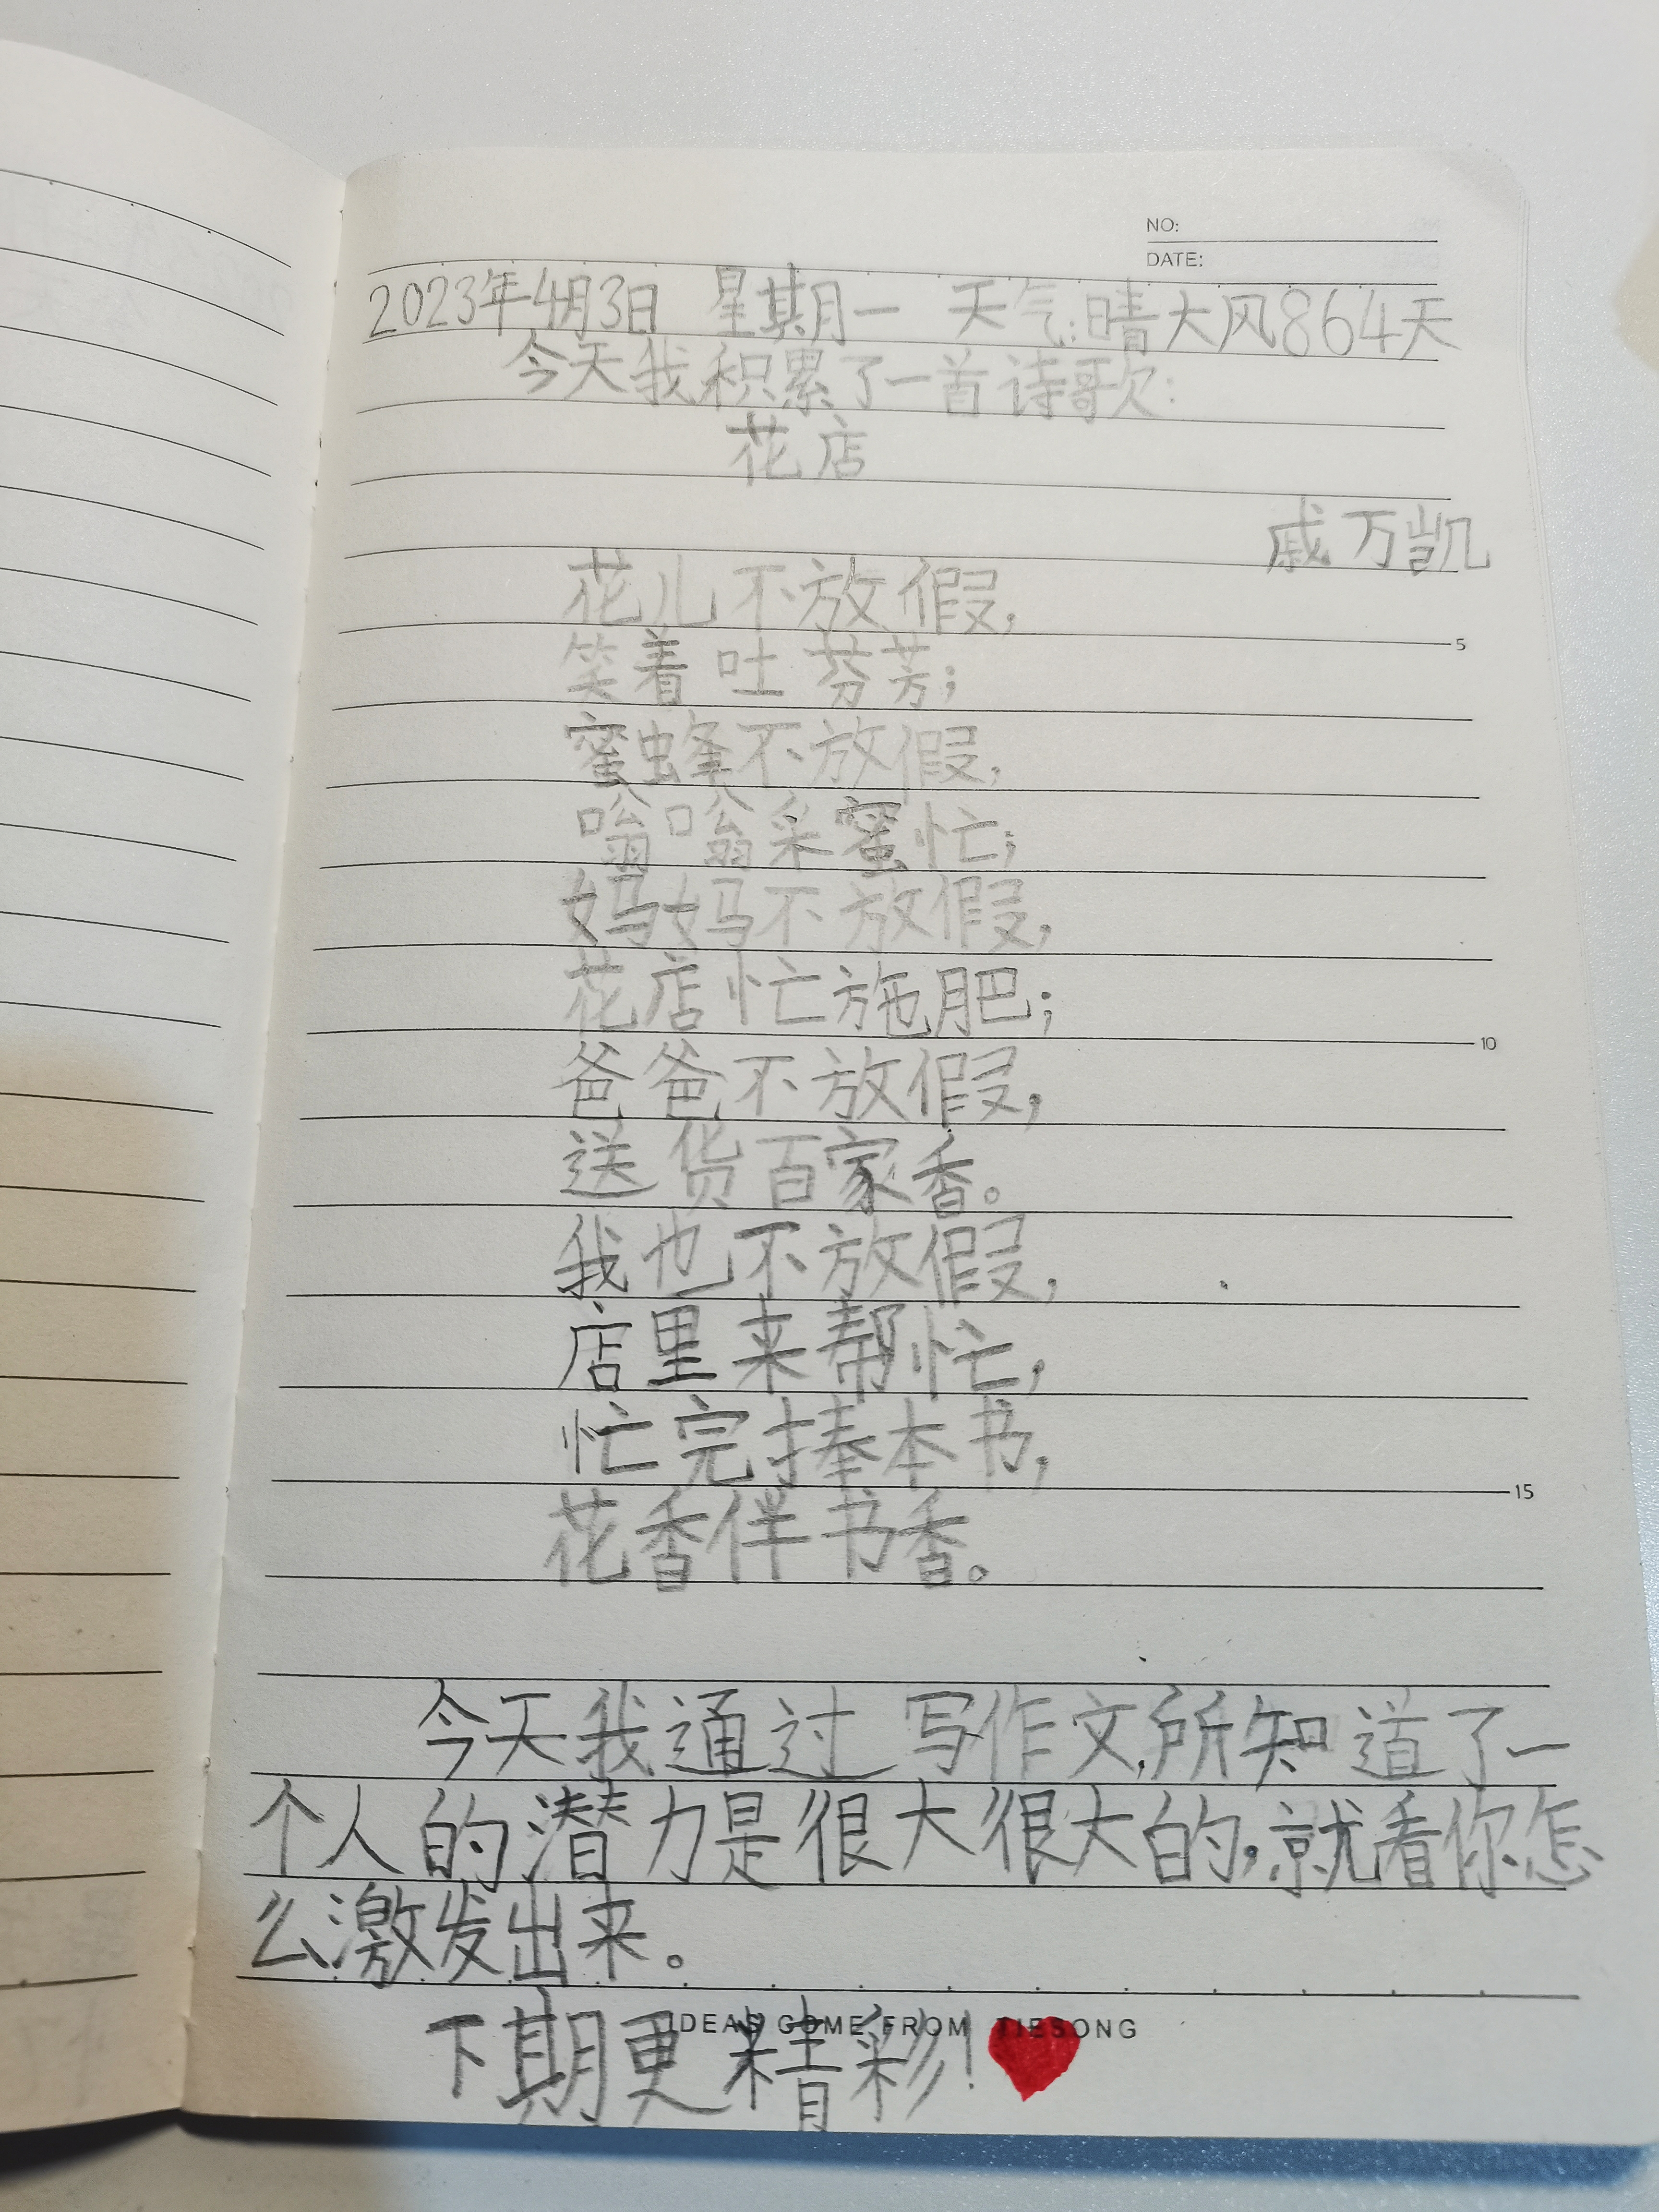 NO:
DATE:
2023年4月3日 星期一 天气:晴大风864天
今天我积累了一首诗歌:
花店
戚万凯
花儿不放假,
5
笑着吐芬芳;
蜜蜂不放假,
嗡嗡采蜜忙;
妈妈不放假,
花店忙施肥;
10
爸爸不放假,
送货百家香。
我也不放假,
店里来帮忙,
忙完捧本书,
15
花香伴书香。
今天我通过写作文,所知道了一
个人的潜力是很大很大的,就看你怎
么激发出来。
IDEAS COME FROM TIESONG
下期更精彩!